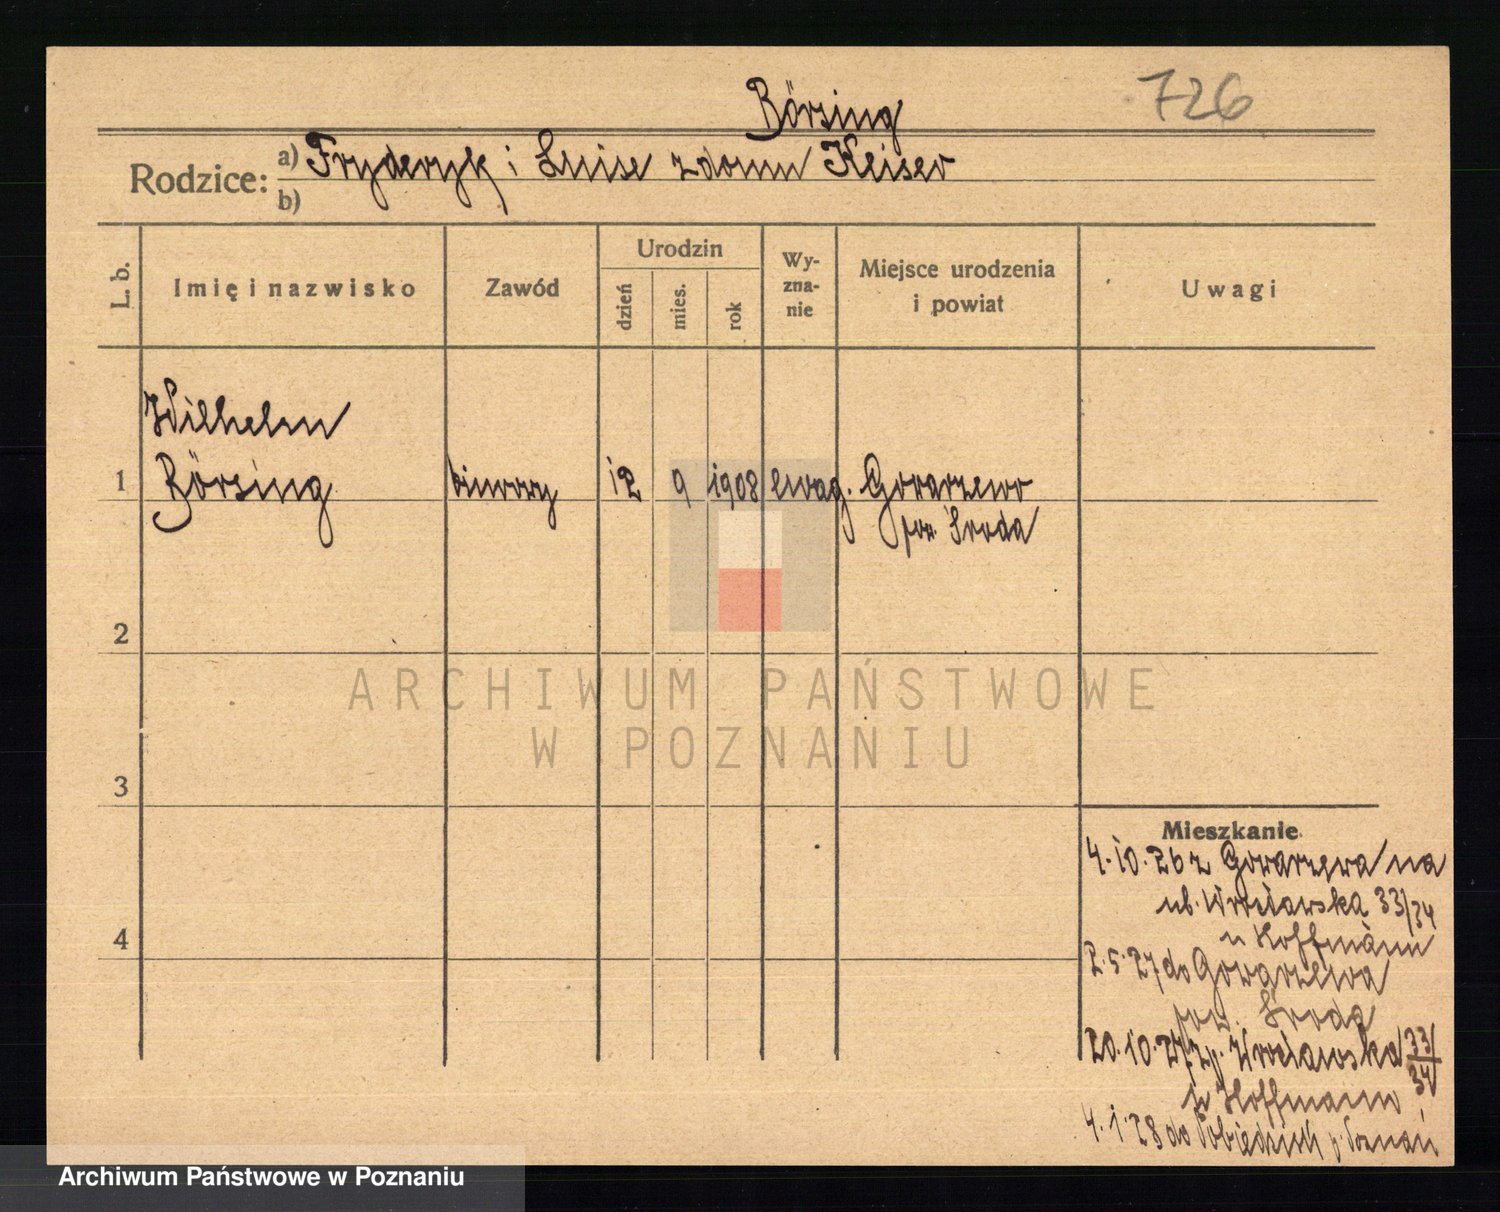 Börsing
726
Rodzice: a) Fryderyk i Luise z domu Keiser
b)
L. b.
Imię i nazwisko
Zawód
Urodzin
dzień
mies.
rok
Wy-
zna-
nie
Miejsce urodzenia
i powiat
Uwagi
Wilhelm
1 Börsing biurowy 12 9 1908 ewag. Gowarzewo
pow. Środa
2
ARCHIWUM PAŃSTWOWE
W POZNANIU
3
Mieszkanie
4.10.26 z Gowarzewa na
ul. Wrocławską 33/34
u Hoffmann
4
2.5.27 do Gowarzewa
pow. Środa
20.10.27 Wrocławska 33/34
u Hoffmann
4.1.28 do Pobiedzisk p. Poznań
Archiwum Państwowe w Poznaniu